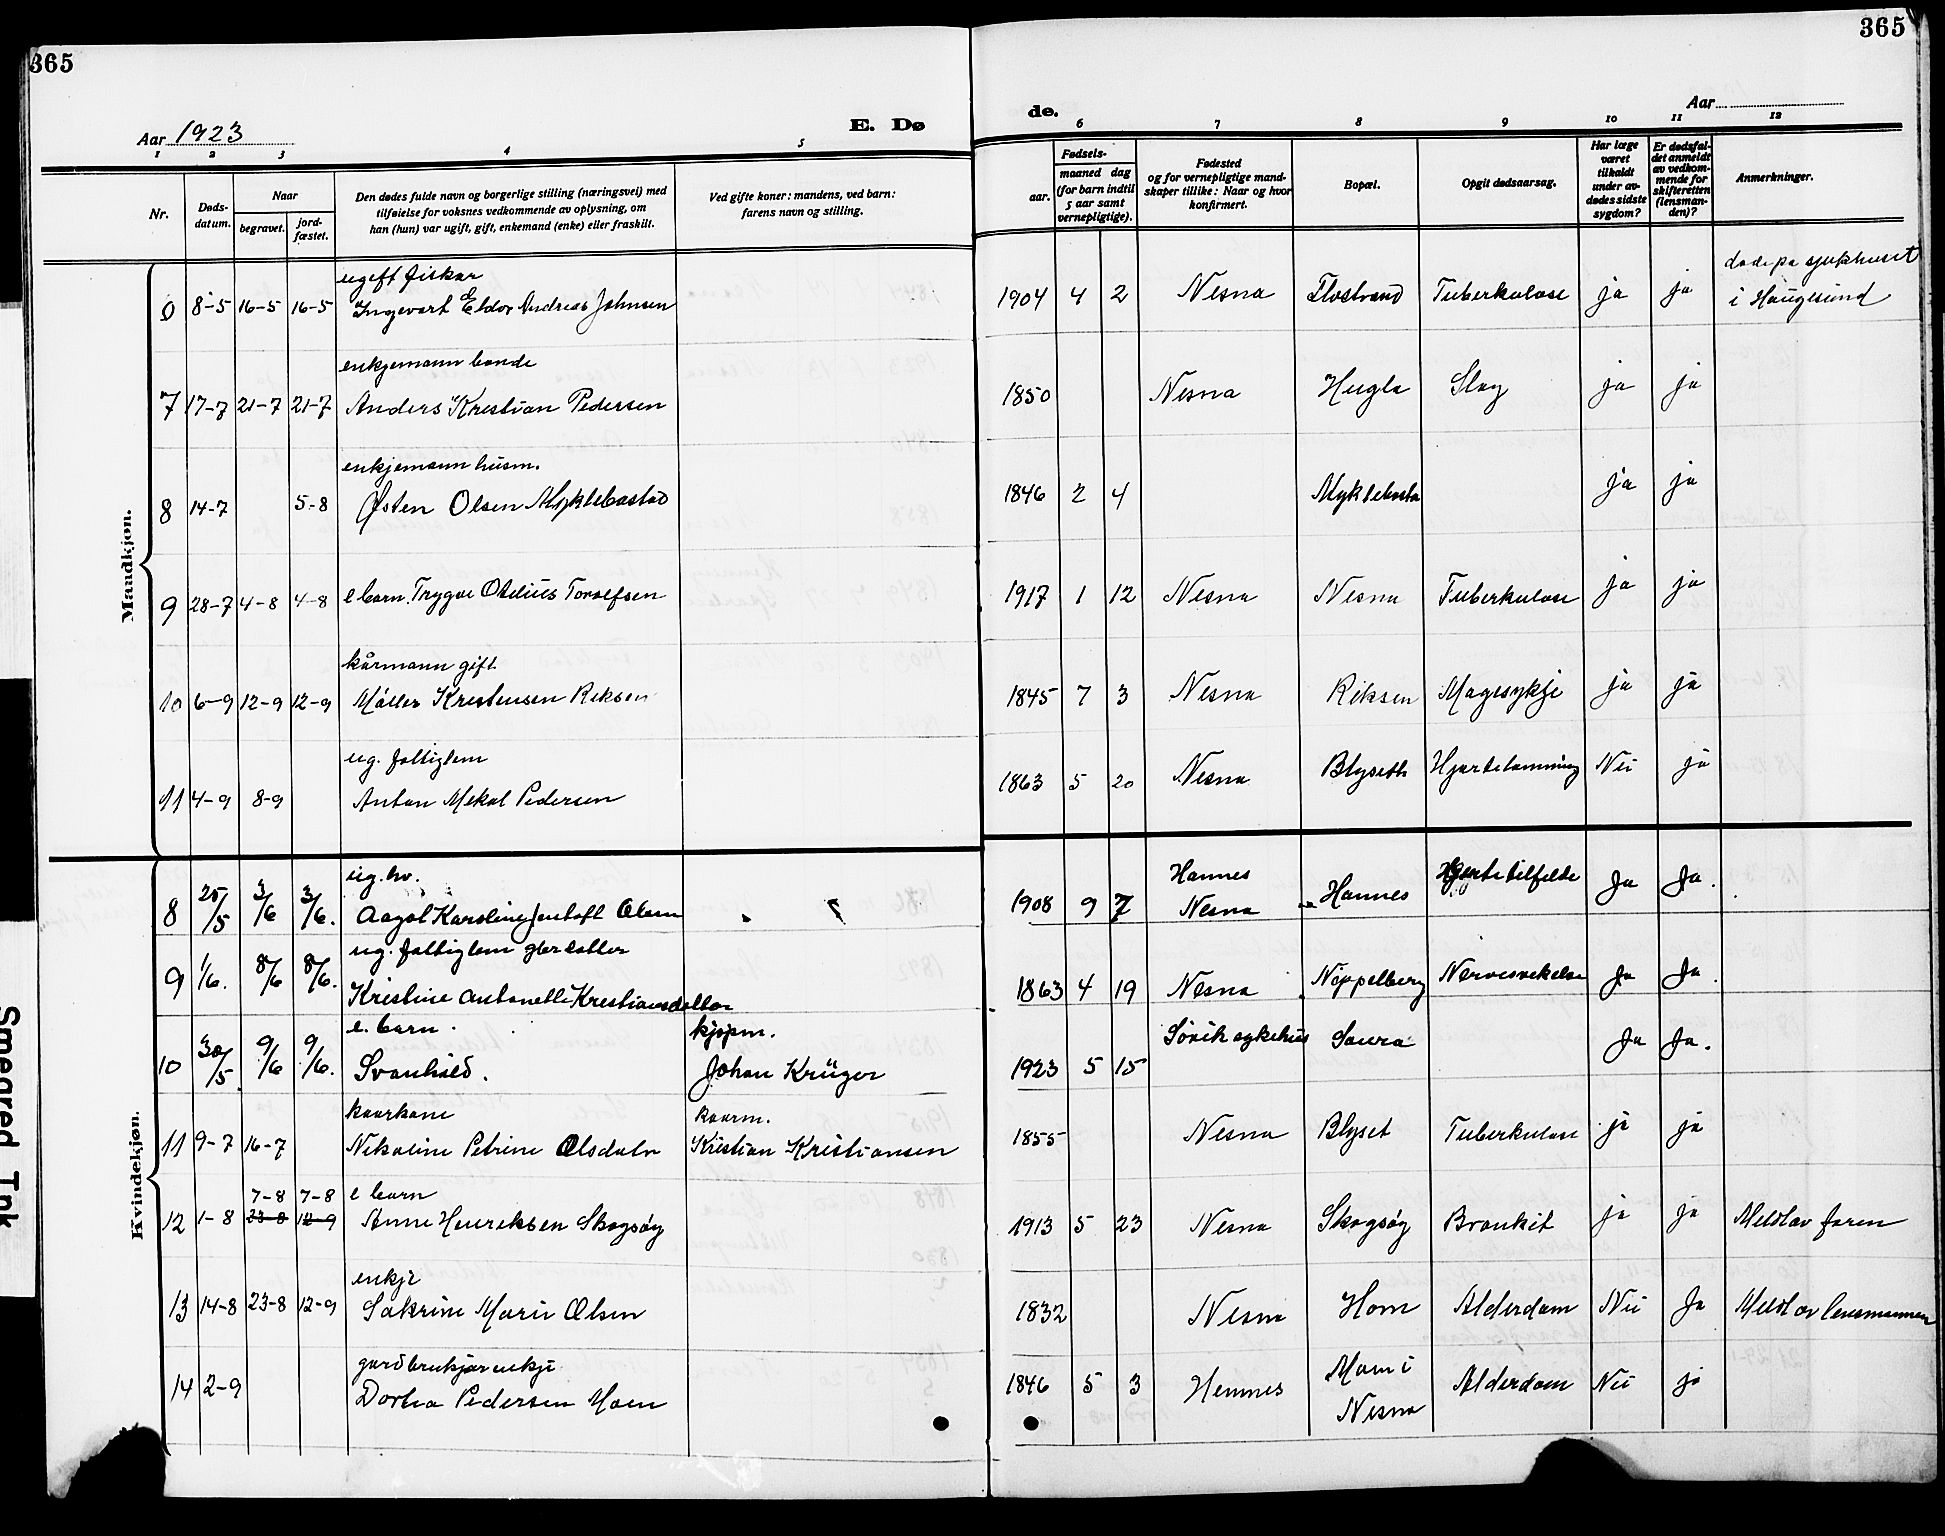 365
365
Aar 1923
E. Dø
de.
Aar
1 2 3 4 5
6 7 8 9 10 11 12
Nr.
Døds-
datum.
Naar
begravet.
jord-
fæstet.
Den dødes fulde navn og borgerlige stilling (næringsvei) med
tilføielse for voksnes vedkommende av oplysning, om
han (hun) var ugift, gift, enkemand (enke) eller fraskilt.
Ved gifte koner: mandens, ved barn:
farens navn og stilling.
Fødsels-
aar.
maaned dag
(for barn indtil
5 aar samt
vernepligtige).
Fødested
og for vernepligtige mand-
skaper tillike: Naar og hvor
konfirmert.
Bopæl.
Opgit dødsaarsag.
Har læge
været
tilkaldt
under av-
dødes sidste
sygdom?
Er dødsfal-
det anmeldt
av vedkom-
mende for
skifteretten
(lensman-
den)?
Anmerkninger.
Mandkjøn.
ugift fiskar
6 8-5 16-5 16-5 Ingevart Eldor Andreas Johnsen 1904 4 2 Nesna Flostrand Tuberkulose ja ja døde på sjukhuset
i Haugesund
enkjemann bonde
7 17-7 21-7 21-7 Anders Krestian Pedersen 1850 Nesna Hugla Slag ja ja
enkjemann husm.
8 14-7 5-8 Østen Olsen Myklebostad 1846 2 4 Myklebosta ja ja
9 28-7 4-8 4-8 e barn Trygve Otelius Torolfsen 1917 1 12 Nesna Nesna Tuberkulose ja ja
kårmann gift
10 6-9 12-9 12-9 Møller Kristensen Riksen 1845 7 3 Nesna Riksen Magesykje ja ja
ug. fattiglem
11 4-9 8-9 Anton Mekal Pedersen 1863 5 20 Nesna Blyseth Hjartelamming Nei ja
Kvindekjøn.
ug. hv.
8 25/5 3/6 3/6. Aagot Karoline Jentoft Olsen 1908 9 7 Hannes
Nesna Hannes Hjertetilfelde Ja Ja.
ug. fattiglem gbr datter
9 1/6. 8/6 8/6. Kristine Antonette Krestiansdatter 1863 4 19 Nesna Nøppelberg Nervesvekelse Ja Ja.
e. barn. kjøpm.
10 30/5 9/6 9/6. Svanhild. Johan Krüger 1923 5 15 Søvik sykehus Saura Ja Ja.
kaarkone kaarm.
11 9-7 16-7 Nikoline Petrine Olsdatr Kristian Kristiansen 1855 Nesna Blyset Tuberkulose ja ja
7-8 7-8 e barn
12 1-8 23-8 12-9 Anne Henriksen Skogsøy 1913 5 23 Nesna Skogsøy Bronkit ja ja Meldt av faren
enkje
13 14-8 23-8 12-9 Sakrine Marie Olsen 1832 Nesna Hom Alderdom Nei Ja Meldt av lensmannen
gardbrukjarenkje
14 2-9 Dortea Pedersen Moen 1846 5 3 Hemnes Mom i
Nesna Alderdom Nei ja